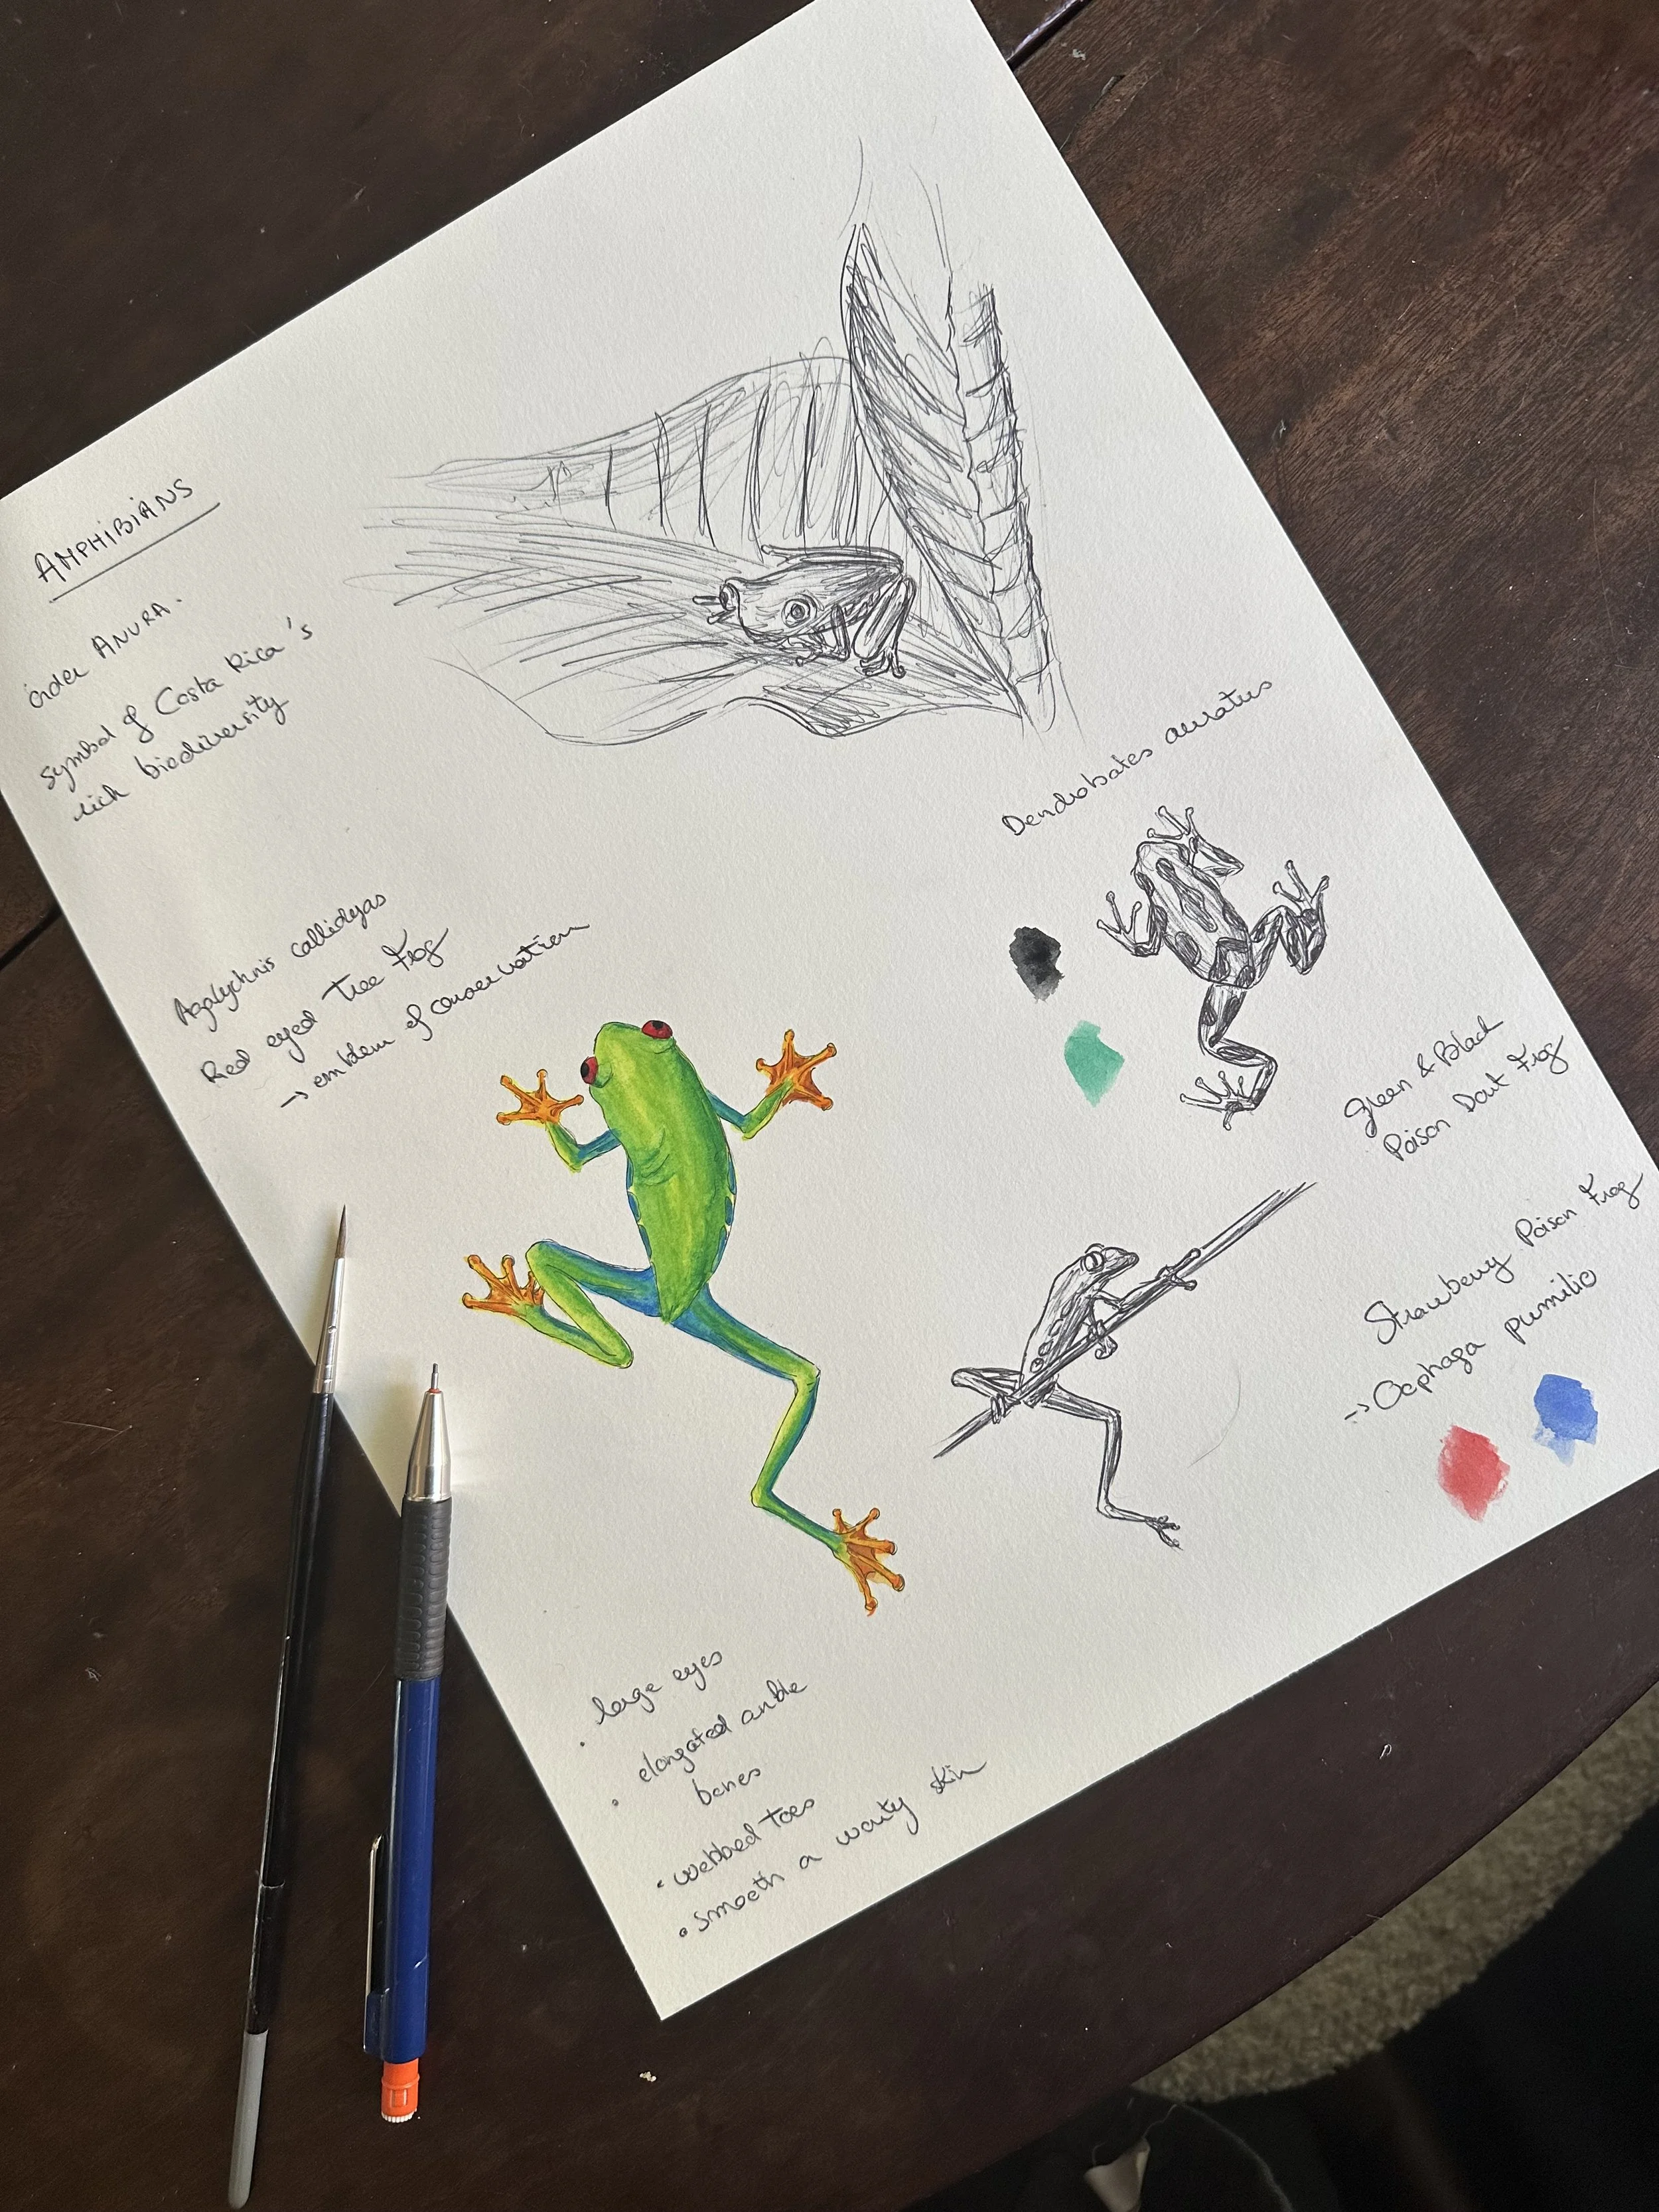 AMPHIBIANS
order ANURA.
symbol of Costa Rica's
rich biodiversity
Agalychnis callidyas
Red eyed Tree Frog
-> emblem of conservation
Dendrobates auratus
Green & Black
Poison Dart Frog
Strawberry Poison Frog
-> Oophaga pumilio
• large eyes
• elongated ankle
bones
• webbed toes
• smooth a warty skin